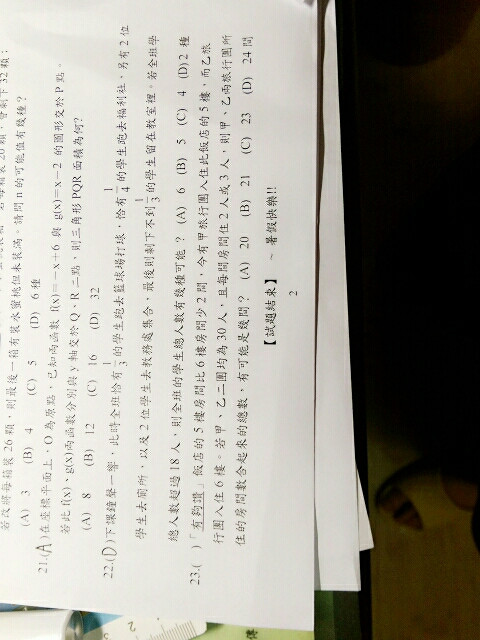 若改將每箱裝 26 顆,則最後一箱有裝水蜜桃但未裝滿。請問 n 的可能值有幾種?
(A) 3 (B) 4 (C) 5 (D) 6 種
21.(A)在座標平面上,O 為原點,已知兩函數 f(x)=-x+6 與 g(x)=x-2 的圖形交於 P 點。
若此 f(x)、g(x)兩函數分別與 y 軸交於 Q、R 二點,則三角形 PQR 面積為何?
(A) 8 (B) 12 (C) 16 (D) 32
22.(D)下課鐘聲一響,此時全班恰有1/3的學生跑去籃球場打球,恰有1/4的學生跑去福利社,另有 2 位
學生去廁所,以及 2 位學生去教務處集合,最後則剩下不到1/3的學生留在教室裡。若全班學
總人數超過 18 人,則全班的學生總人數有幾種可能? (A) 6 (B) 5 (C) 4 (D) 2 種
23.( )「有夠讚」飯店的 5 樓房間比 6 樓房間少 2 間,今有甲旅行團入住此飯店的 5 樓,而乙旅
行團入住 6 樓。若甲、乙二團均為 30 人,且每間房間住 2 人或 3 人,則甲、乙兩旅行團所
住的房間數合起來的總數,有可能是幾間? (A) 20 (B) 21 (C) 23 (D) 24 間
【試題結束】 ~ 暑假快樂!!
2